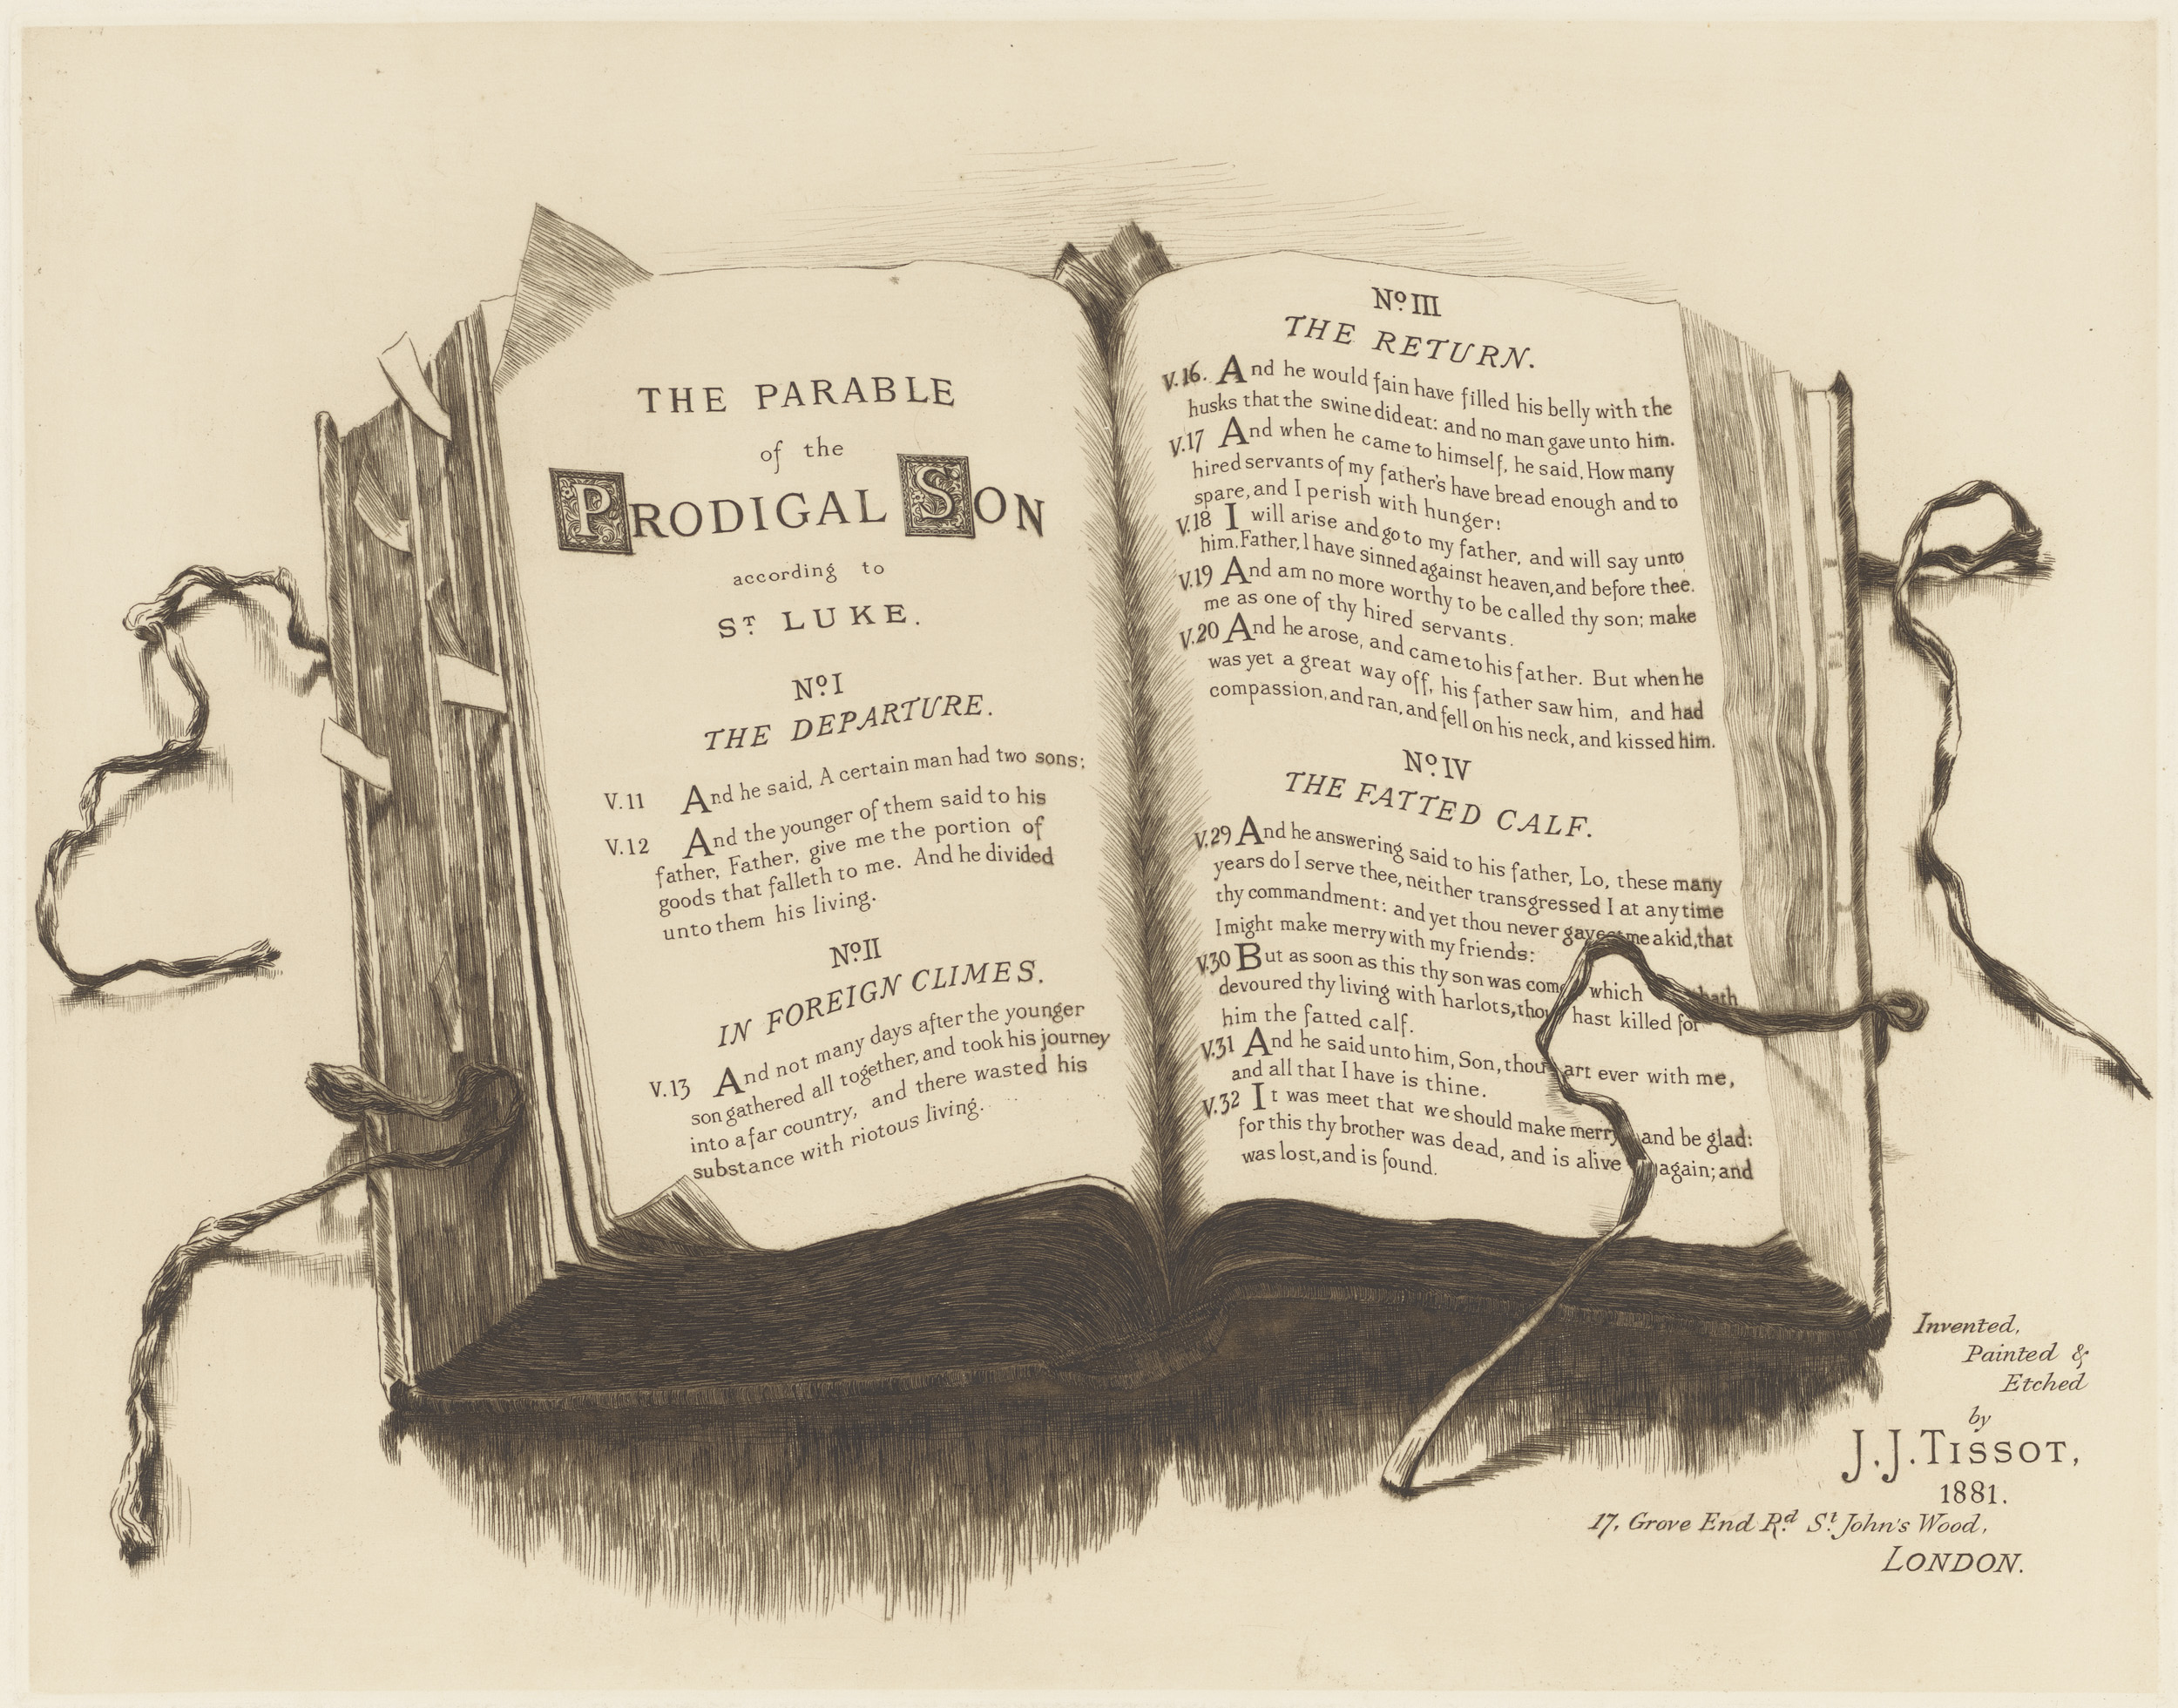 THE PARABLE
of the
PRODIGAL SON
according to
ST LUKE.
No. I
THE DEPARTURE.
V.11 And he said, A certain man had two sons:
V.12 And the younger of them said to his
father, Father, give me the portion of
goods that falleth to me. And he divided
unto them his living.
No. II
IN FOREIGN CLIMES.
V.13 And not many days after the younger
son gathered all together, and took his journey
into a far country, and there wasted his
substance with riotous living.
No. III
THE RETURN.
V.16. And he would fain have filled his belly with the
husks that the swine did eat: and no man gave unto him.
V.17 And when he came to himself, he said, How many
hired servants of my father's have bread enough and to
spare, and I perish with hunger!
V.18 I will arise and go to my father, and will say unto
him. Father, I have sinned against heaven, and before thee.
V.19 And am no more worthy to be called thy son; make
me as one of thy hired servants.
V.20 And he arose, and came to his father. But when he
was yet a great way off, his father saw him, and had
compassion, and ran, and fell on his neck, and kissed him.
No. IV
THE FATTED CALF.
V.29 And he answering said to his father, Lo, these many
years do I serve thee, neither transgressed I at any time
thy commandment: and yet thou never gavest me a kid, that
I might make merry with my friends:
V.30 But as soon as this thy son was come which hath
devoured thy living with harlots, thou hast killed for
him the fatted calf.
V.31 And he said unto him, Son, thou art ever with me,
and all that I have is thine.
V.32 It was meet that we should make merry and be glad:
for this thy brother was dead, and is alive again; and
was lost, and is found.
Invented,
Painted &
Etched
by
J. J. TISSOT,
1881.
17, Grove End Rd St John's Wood,
LONDON.